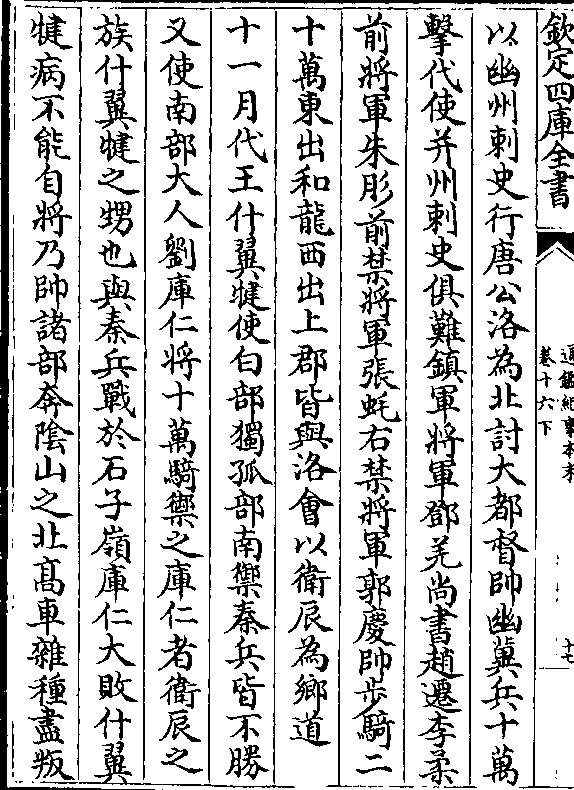 欽定四庫全書
通鑑紀事本末
卷十六下
十七
以幽州刺史行唐公洛為北討大都督帥幽冀兵十萬
擊代使并州刺史俱難鎮軍將軍鄧羌尚書趙遷李柔
前將軍朱肜前禁將軍張蚝右禁將軍郭慶帥步騎二
十萬東出和龍西出上郡皆與洛會以衛辰為鄉道
十一月代王什翼犍使白部獨孤部南禦秦兵皆不勝
又使南部大人劉庫仁將十萬騎禦之庫仁者衛辰之
族什翼犍之甥也與秦兵戰於石子嶺庫仁大敗什翼
犍病不能自將乃帥諸部奔隂山之北髙車雜種盡叛